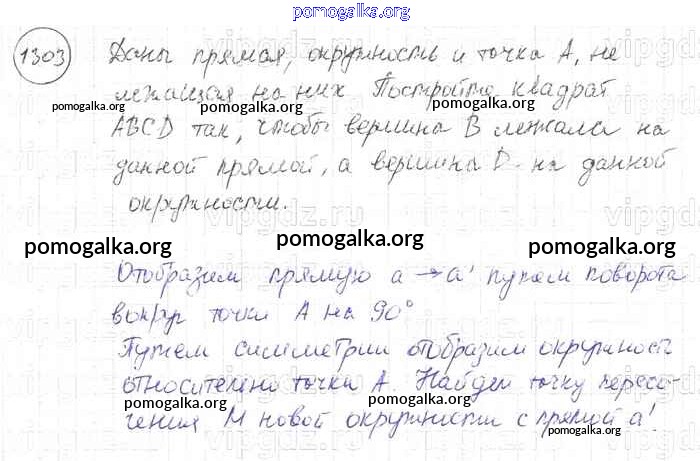 pomogalka.org
1303 Даны прямая, окружность и точка А, не
лежащая на них Постройте квадрат
pomogalka.org pomogalka.org pomogalka.org
ABCD так, чтобы вершина В лежала на
данной прямой, а вершина D на данной
окружности.
pomogalka.org pomogalka.org pomogalka.org
Отобразим прямую a → a' путем поворота
вокруг точки А на 90°
pomogalka.org pomogalka.org pomogalka.org
Путем симметрии отобразим окружность
относительно точки А. Найдем точку пересе-
pomogalka.org pomogalka.org
чения М новой окружности с прямой a'.
pomogalka.org